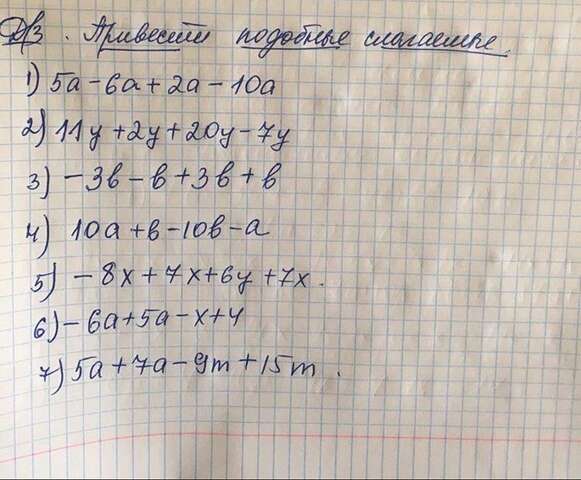 Д/З. Привести подобные слагаемые.
1) 5a - 6a + 2a - 10a
2) 11y + 2y + 20y - 7y
3) - 3в - в + 3в + в
4) 10a + в - 10в - a
5) - 8x + 7x + 6y + 7x.
6) - 6a + 5a - x + 4
7) 5a + 7a - 9m + 15m.